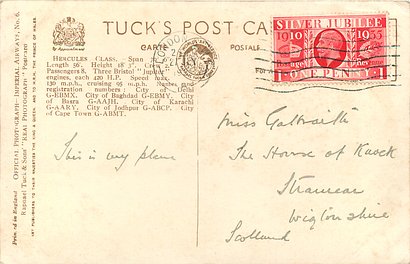 TUCK'S POST CARD
CARTE POSTALE
By Appointment
HERCULES CLASS. Span
Length 56'. Height 18' 3". Crew
Passengers 8. Three Bristol "Jupiter"
engines, each 420 H.P. Speed
130 m.p.h., cruising 95 m.p.h. Names and
registration numbers: City of Delhi
G-EBMX. City of Baghdad G-EBMY. City
of Basra G-AAJH. City of Karachi
G-AARY. City of Jodhpur G-ABCP. City
of Cape Town G-ABMT.
Printed in England
OFFICIAL PHOTOGRAPH: IMPERIAL AIRWAYS, No. 6.
Raphael Tuck & Sons' "REAL PHOTOGRAPH" Postcard
LONDON
SILVER JUBILEE
1910 1935
ONE PENNY
This is my plane
Miss Galbraith
The House of Knock
Stranraer
Wigtonshire
Scotland